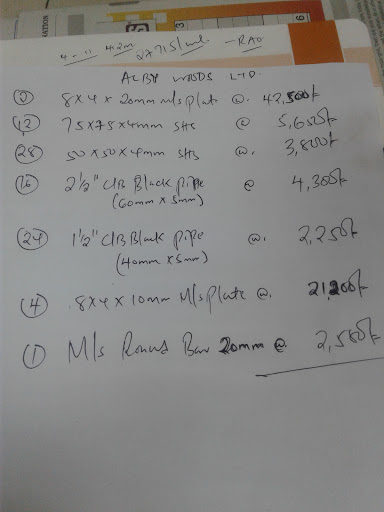 4" 4.2m 27715/ - RAO
ALBY WOODS LTD.
② 8x4x20mm M/s plate @. 42,500/-
⑫ 75x75x4mm SHS @ 5,600/-
㉘ 50x50x4mm SHS @. 3,800/-
⑯ 2½" C/B Black pipe @ 4,300/-
(60mm x 5mm)
㉔ 1½" C/B Black pipe @. 2,250/-
(40mm x 5mm)
④ 8x4x10mm M/s plate @. 21,200/-
① M/s Round Bar 20mm @ 2,580/-